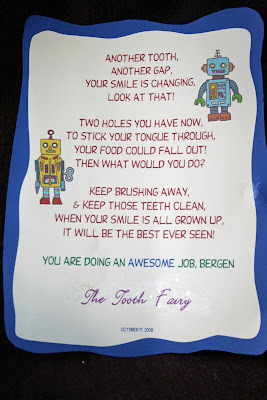 ANOTHER TOOTH,
ANOTHER GAP,
YOUR SMILE IS CHANGING,
LOOK AT THAT!
TWO HOLES YOU HAVE NOW,
TO STICK YOUR TONGUE THROUGH,
YOUR FOOD COULD FALL OUT!
THEN WHAT WOULD YOU DO?
KEEP BRUSHING AWAY,
& KEEP THOSE TEETH CLEAN,
WHEN YOUR SMILE IS ALL GROWN UP,
IT WILL BE THE BEST EVER SEEN!
YOU ARE DOING AN AWESOME JOB, BERGEN
The Tooth Fairy
OCTOBER 2008